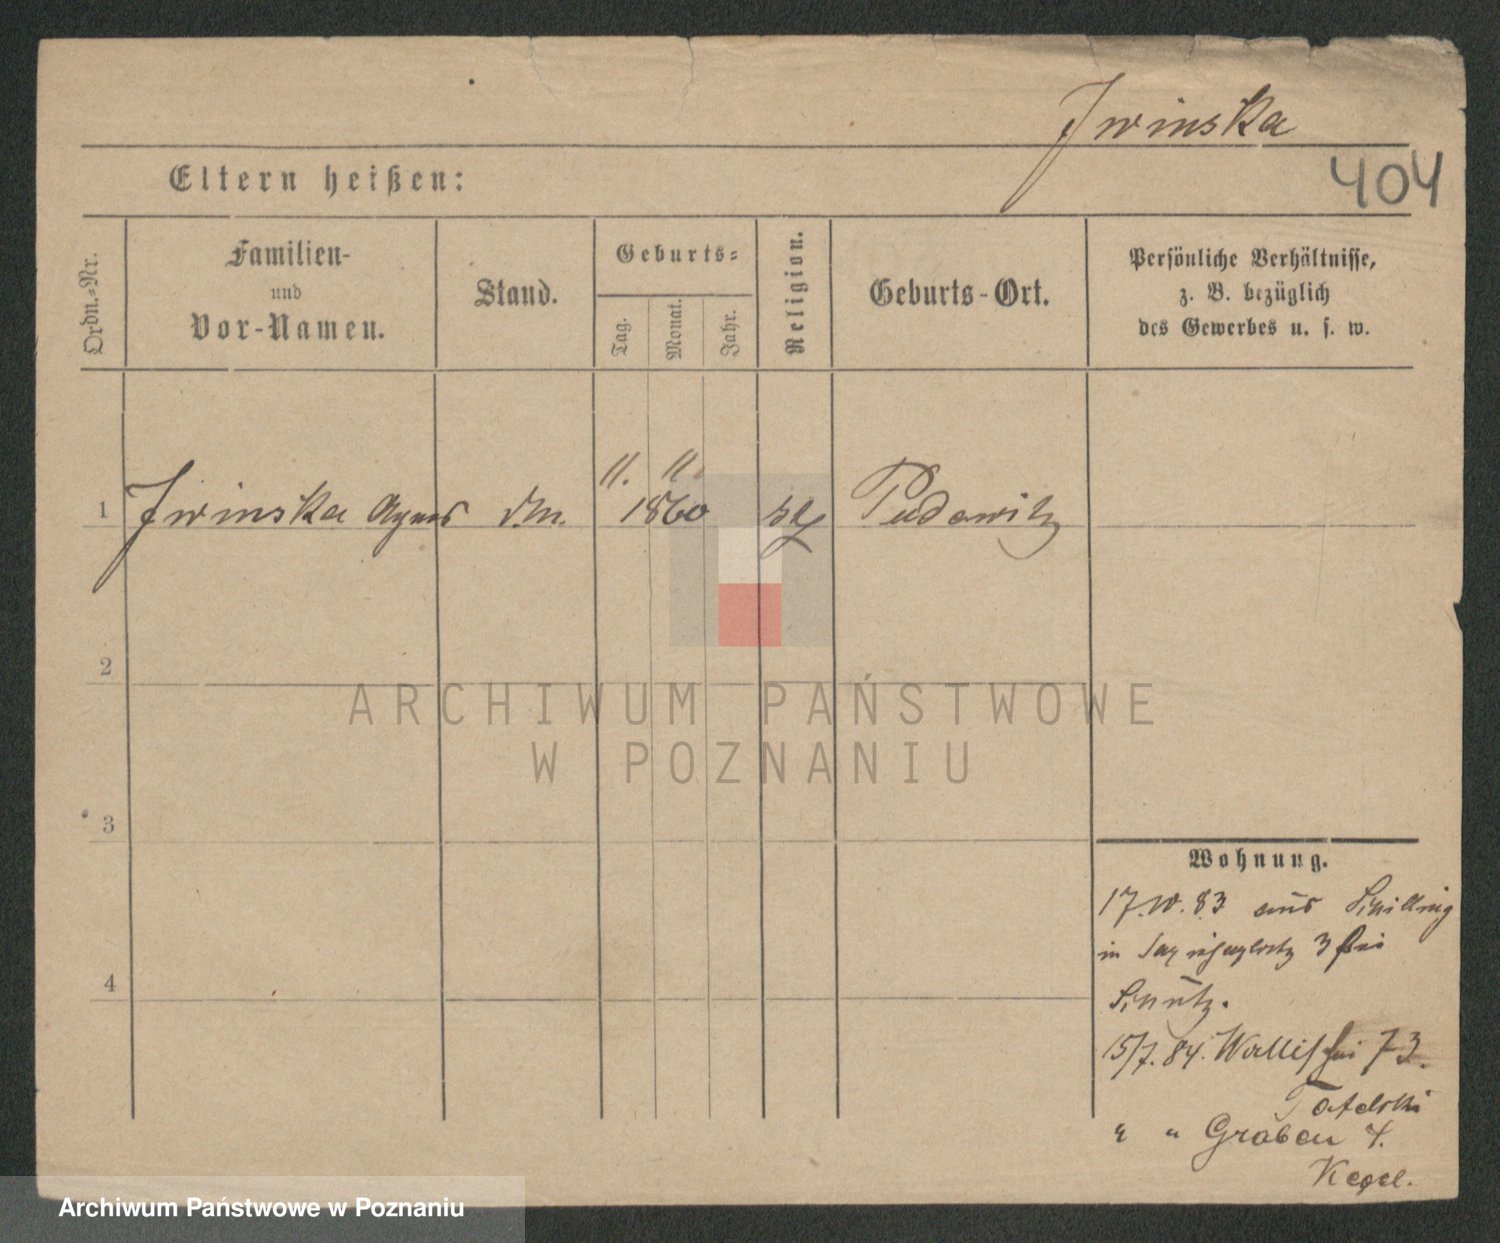 Jwinska
404
Eltern heißen:
Ordn.-Nr.
Familien-
und
Vor-Namen.
Stand.
Geburts-
Tag.
Monat.
Jahr.
Religion.
Geburts-Ort.
Persönliche Verhältnisse,
z. B. bezüglich
des Gewerbes u. s. w.
11. 11.
1 Jwinska Agnes 1860 Pudewitz
2
3
4
Wohnung.
17. 83 aus Schilling
in 3 bei
Schütz.
15/7. 84. Wallischei 73.
" " Graben 4.
Kegel.
ARCHIWUM PAŃSTWOWE
W POZNANIU
Archiwum Państwowe w Poznaniu